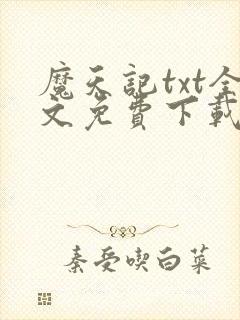 魔天記txt全
文免費下載
秦受喫白菜